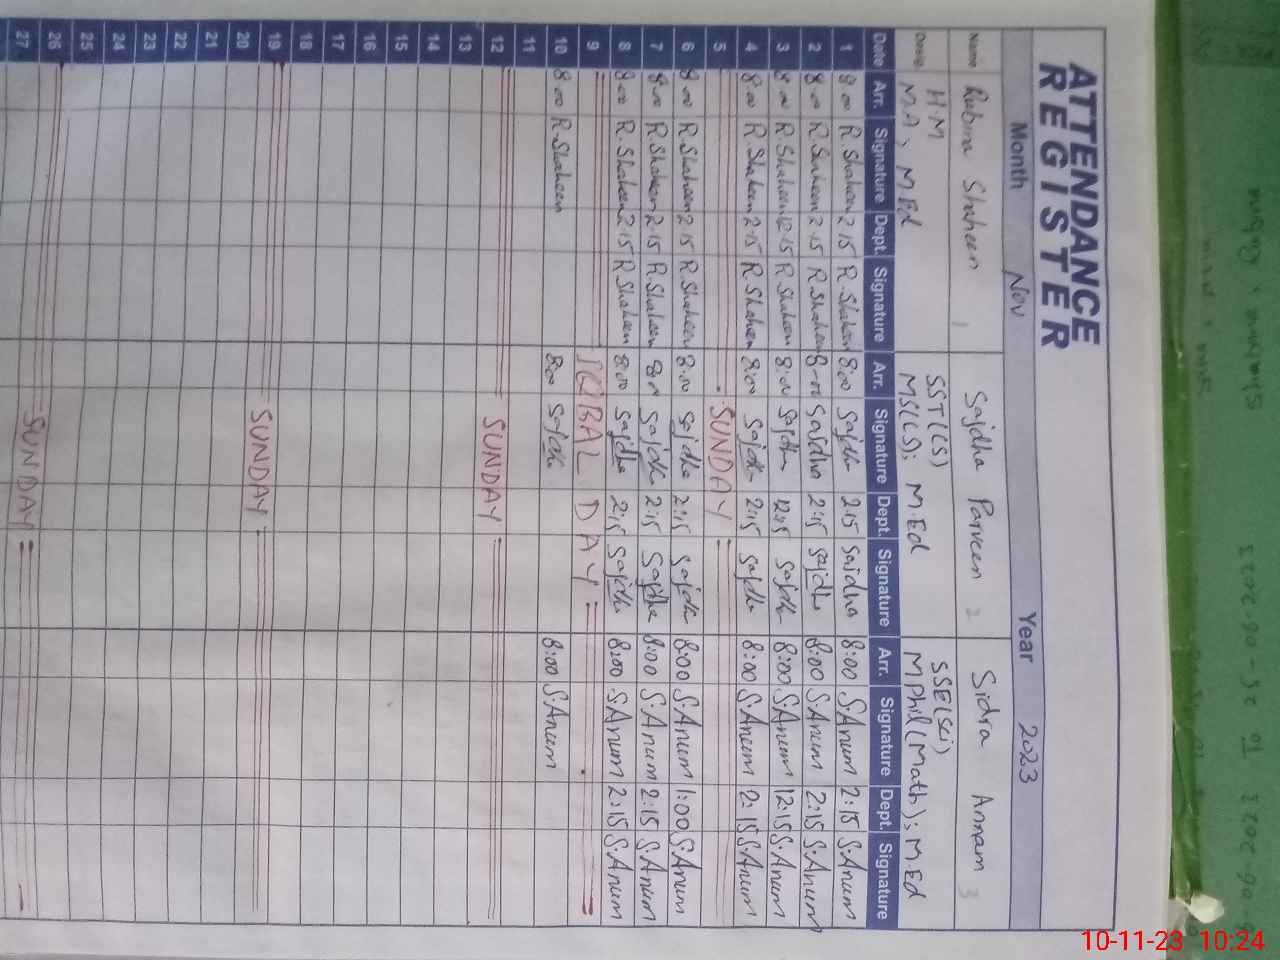 ATTENDANCE
REGISTER
Month Nov Year 2023
Name Rubina Shaheen 1 Sajdha Parveen 2 Sidra Annam 3
Desig: H.M SST(CS) SSE(Sci)
M.A, M.Ed MS(CS), M.Ed MPhil(Math), M.Ed
Date Arr. Signature Dept. Signature Arr. Signature Dept. Signature Arr. Signature Dept. Signature
1 8:00 R.Shaheen 2:15 R.Shaheen 8:00 Sajdha 2:15 Sajdha 8:00 S.Anum 2:15 S.Anum
2 8:00 R.Shaheen 2:15 R.Shaheen 8:00 Sajdha 2:15 Sajdha 8:00 S.Anum 2:15 S.Anum
3 8:00 R.Shaheen 12:15 R.Shaheen 8:00 Sajdha 12:15 Sajdha 8:00 S.Anum 12:15 S.Anum
4 8:00 R.Shaheen 2:15 R.Shaheen 8:00 Sajdha 2:15 Sajdha 8:00 S.Anum 2:15 S.Anum
5 SUNDAY
6 8:00 R.Shaheen 2:15 R.Shaheen 8:00 Sajdha 2:15 Sajdha 8:00 S.Anum 1:00 S.Anum
7 8:00 R.Shaheen 2:15 R.Shaheen 8:00 Sajdha 2:15 Sajdha 8:00 S.Anum 2:15 S.Anum
8 8:00 R.Shaheen 2:15 R.Shaheen 8:00 Sajdha 2:15 Sajdha 8:00 S.Anum 2:15 S.Anum
9 IQBAL DAY
10 8:00 R.Shaheen 8:00 Sajdha 8:00 S.Anum
11
12 SUNDAY
13
14
15
16
17
18
19 SUNDAY
20
21
22
23
24
25
26 SUNDAY
27
10-11-23 10:24